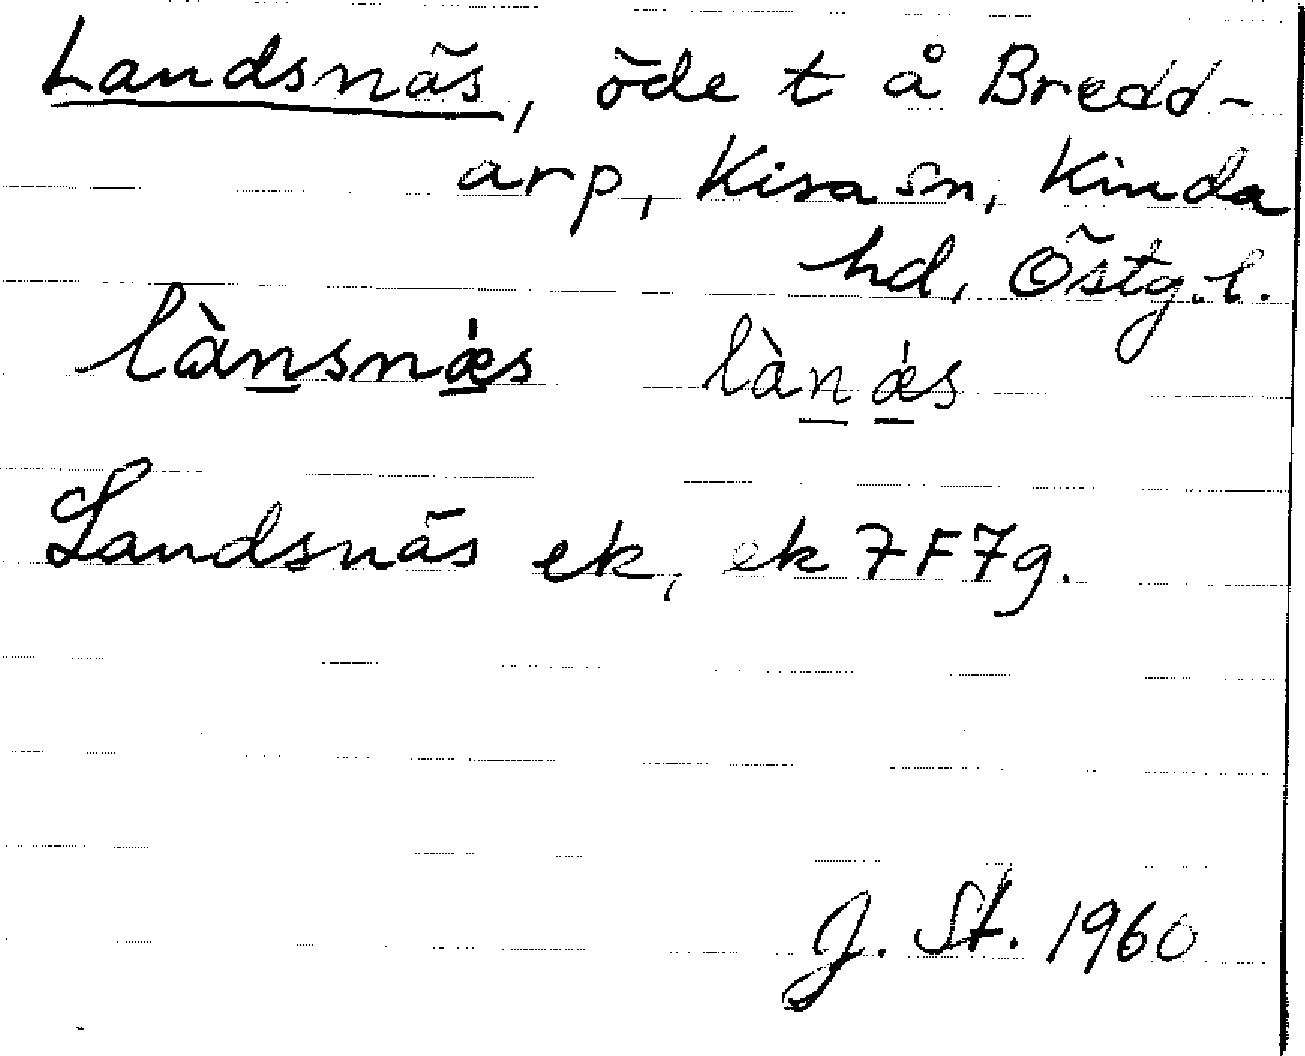 Landsnäs, öde t å Bredd-
arp, Kisa sn, Kinda
hd, Östg.l.
lànsnǽs lànǽs
Landsnäs ek, ek 7F7g.
J. St. 1960